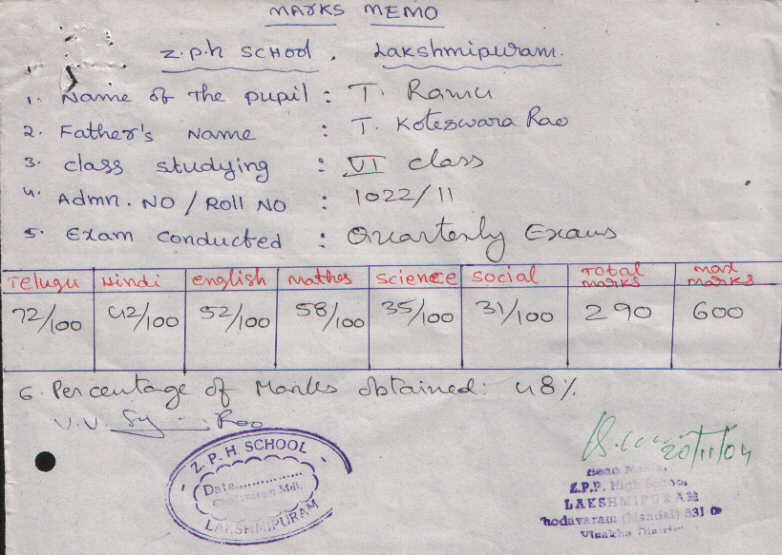 MARKS MEMO
Z.P.h SCHOOl, Lakshmipuram.
1. Name of the pupil : T. Ramu
2. Father's Name : T. Koteswara Rao
3. class studying : VI class
4. Admn. NO / Roll NO : 1022/11
5. Exam conducted : Quarterly Exams
Telugu Hindi english Mathes science social Total marks max marks
72/100 42/100 52/100 58/100 35/100 31/100 290 600
6. Percentage of Marks obtained: 48%
V.V. Rao
Z.P.H. SCHOOL
Date
LAKSHMIPURAM
20/11/04
Z.P.P. High School
LAKSHMIPURAM
hodavaram (Mandal) 531 0
Visakha District